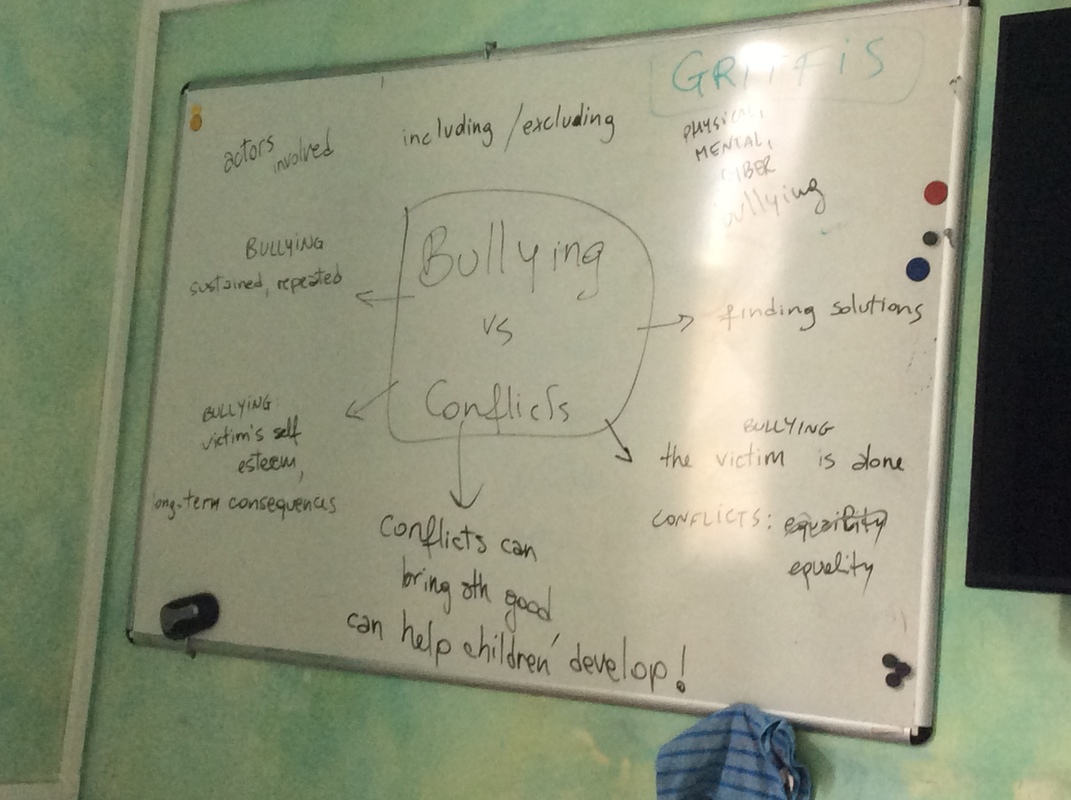 GRIFFiS
actors involved
including / excluding
PHYSICAL,
MENTAL,
CYBER
bullying
BULLYiNG
sustained, repeated
Bullying
vs
Conflicts
finding solutions
BULLYiNG
victim's self
esteem,
long-term consequences
BULLYING
the victim is alone
CONFLICTS:
equality
Conflicts can
bring sth good,
can help children develop!